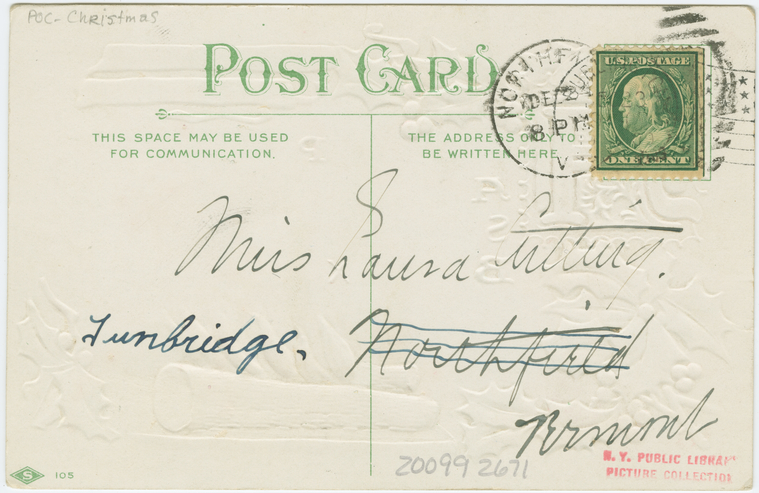 POC-Christmas
POST CARD
THIS SPACE MAY BE USED
FOR COMMUNICATION.
THE ADDRESS ONLY TO
BE WRITTEN HERE
NORTH
DE
8 PM
V
U.S. POSTAGE
ONE CENT
Miss Laura Cutting.
Tunbridge. Northfield
Vermont
S 105
20099 2671
N.Y. PUBLIC LIBRARY
PICTURE COLLECTION